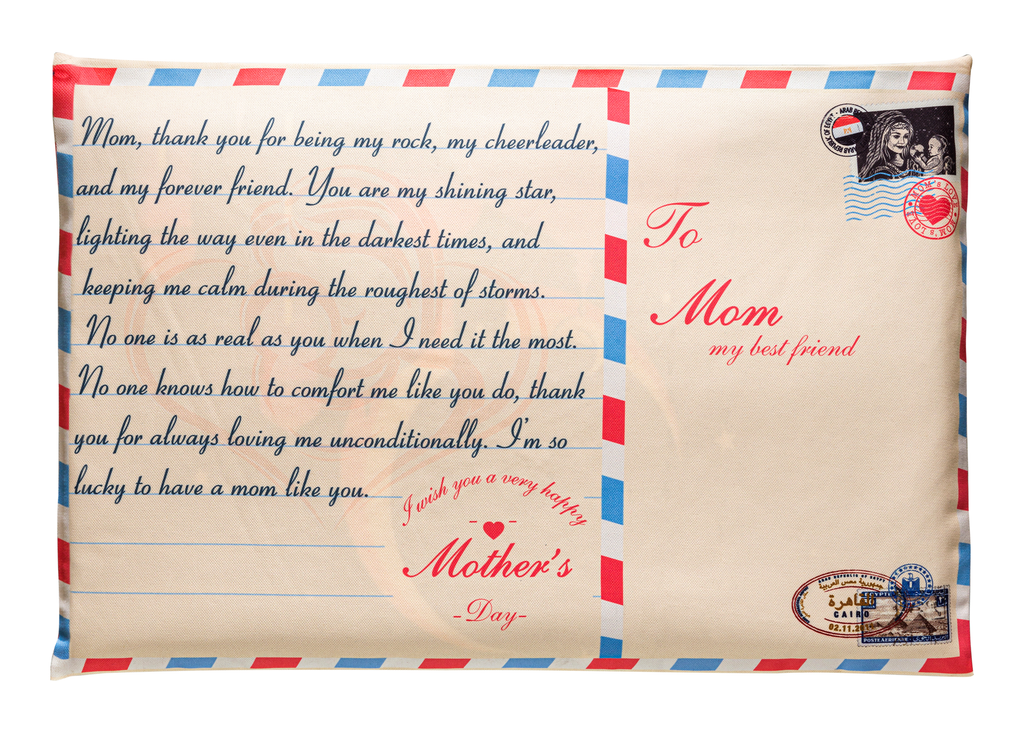 Mom, thank you for being my rock, my cheerleader,
and my forever friend. You are my shining star,
lighting the way even in the darkest times, and
keeping me calm during the roughest of storms.
No one is as real as you when I need it the most.
No one knows how to comfort me like you do, thank
you for always loving me unconditionally. I'm so
lucky to have a mom like you.
I wish you a very happy
Mother's
-Day-
To
Mom
my best friend
MOM'S LOVE
MOM'S LOVE
ARAB REPUBLIC OF EGYPT
جمهورية مصر العربية
القاهرة
CAIRO
EGYPTE
POSTE AERIENNE